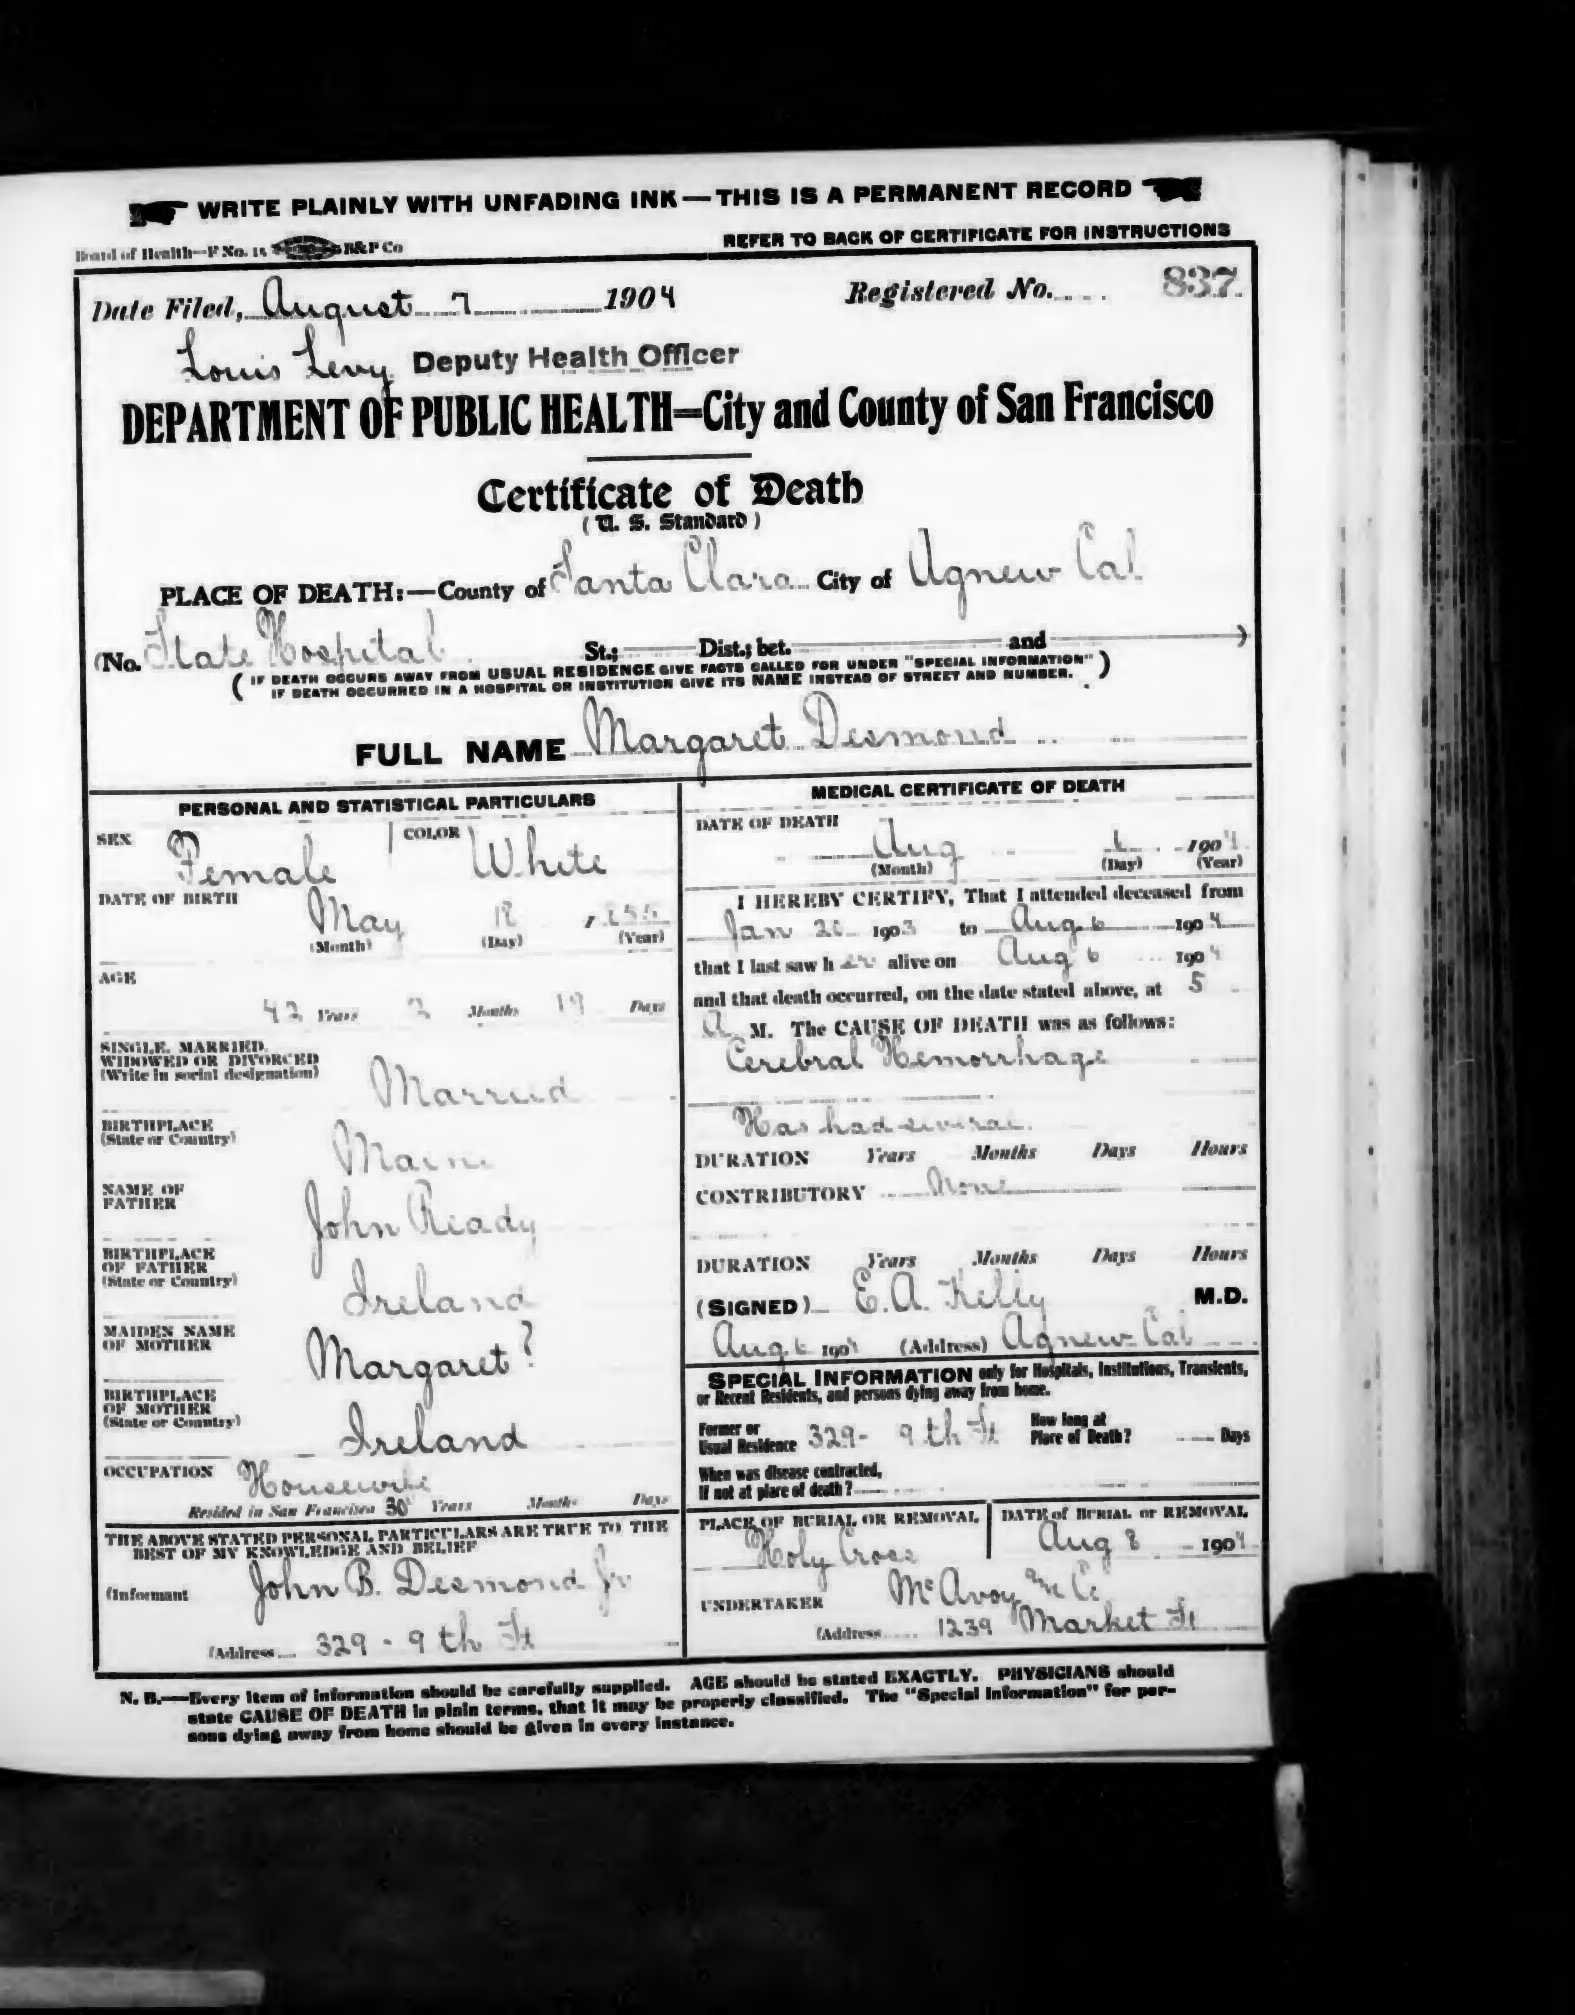 WRITE PLAINLY WITH UNFADING INK—THIS IS A PERMANENT RECORD
Board of Health—F No. 15 B&P Co
REFER TO BACK OF CERTIFICATE FOR INSTRUCTIONS
Date Filed, August 7 1904 Registered No. 837
Louis Levy Deputy Health Officer
DEPARTMENT OF PUBLIC HEALTH—City and County of San Francisco
Certificate of Death
(U. S. Standard)
PLACE OF DEATH:—County of Santa Clara City of Agnew Cal.
(No. State Hospital St.; Dist.; bet. and )
(IF DEATH OCCURS AWAY FROM USUAL RESIDENCE GIVE FACTS CALLED FOR UNDER "SPECIAL INFORMATION"
IF DEATH OCCURRED IN A HOSPITAL OR INSTITUTION GIVE ITS NAME INSTEAD OF STREET AND NUMBER.)
FULL NAME Margaret Desmond
PERSONAL AND STATISTICAL PARTICULARS
SEX Female COLOR White
DATE OF BIRTH May 18
(Month) (Day) (Year)
AGE
Years 2 Months Days
SINGLE, MARRIED,
WIDOWED OR DIVORCED
(Write in social designation) Married
BIRTHPLACE
(State or Country) Maine
NAME OF
FATHER John Ready
BIRTHPLACE
OF FATHER
(State or Country) Ireland
MAIDEN NAME
OF MOTHER Margaret ?
BIRTHPLACE
OF MOTHER
(State or Country) Ireland
OCCUPATION Housewife
Resided in San Francisco 30 Years Months Days
THE ABOVE STATED PERSONAL PARTICULARS ARE TRUE TO THE
BEST OF MY KNOWLEDGE AND BELIEF
(Informant John B. Desmond Jr
(Address 329 - 9th St
MEDICAL CERTIFICATE OF DEATH
DATE OF DEATH
Aug 6 1904
(Month) (Day) (Year)
I HEREBY CERTIFY, That I attended deceased from
Jan 20 1903 to Aug 6 1904
that I last saw her alive on Aug 6 1904
and that death occurred, on the date stated above, at 5
A. M. The CAUSE OF DEATH was as follows:
Cerebral Hemorrhage
Has had several.
DURATION Years Months Days Hours
CONTRIBUTORY None
DURATION Years Months Days Hours
(SIGNED) E. A. Kelly M.D.
Aug 6 1904 (Address) Agnew Cal
SPECIAL INFORMATION only for Hospitals, Institutions, Transients,
or Recent Residents, and persons dying away from home.
Former or
Usual Residence 329- 9th St How long at
Place of Death? Days
When was disease contracted,
If not at place of death?
PLACE OF BURIAL OR REMOVAL DATE of BURIAL or REMOVAL
Holy Cross Aug 8 1904
UNDERTAKER McAvoy and Co
(Address 1239 Market St
N. B.—Every item of information should be carefully supplied. AGE should be stated EXACTLY. PHYSICIANS should
state CAUSE OF DEATH in plain terms, that it may be properly classified. The "Special Information" for per-
sons dying away from home should be given in every instance.